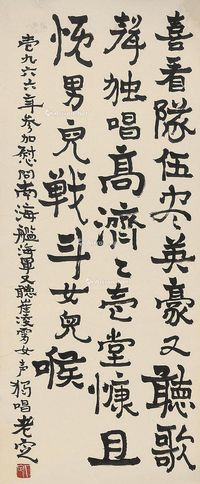 喜看隊伍尽英豪又聽歌
聲独唱高濟〻壱堂慷且
慨男兒戦斗女兒喉
壹九六六年参加慰问南海艦海軍又聽崔淩雪女声獨唱老